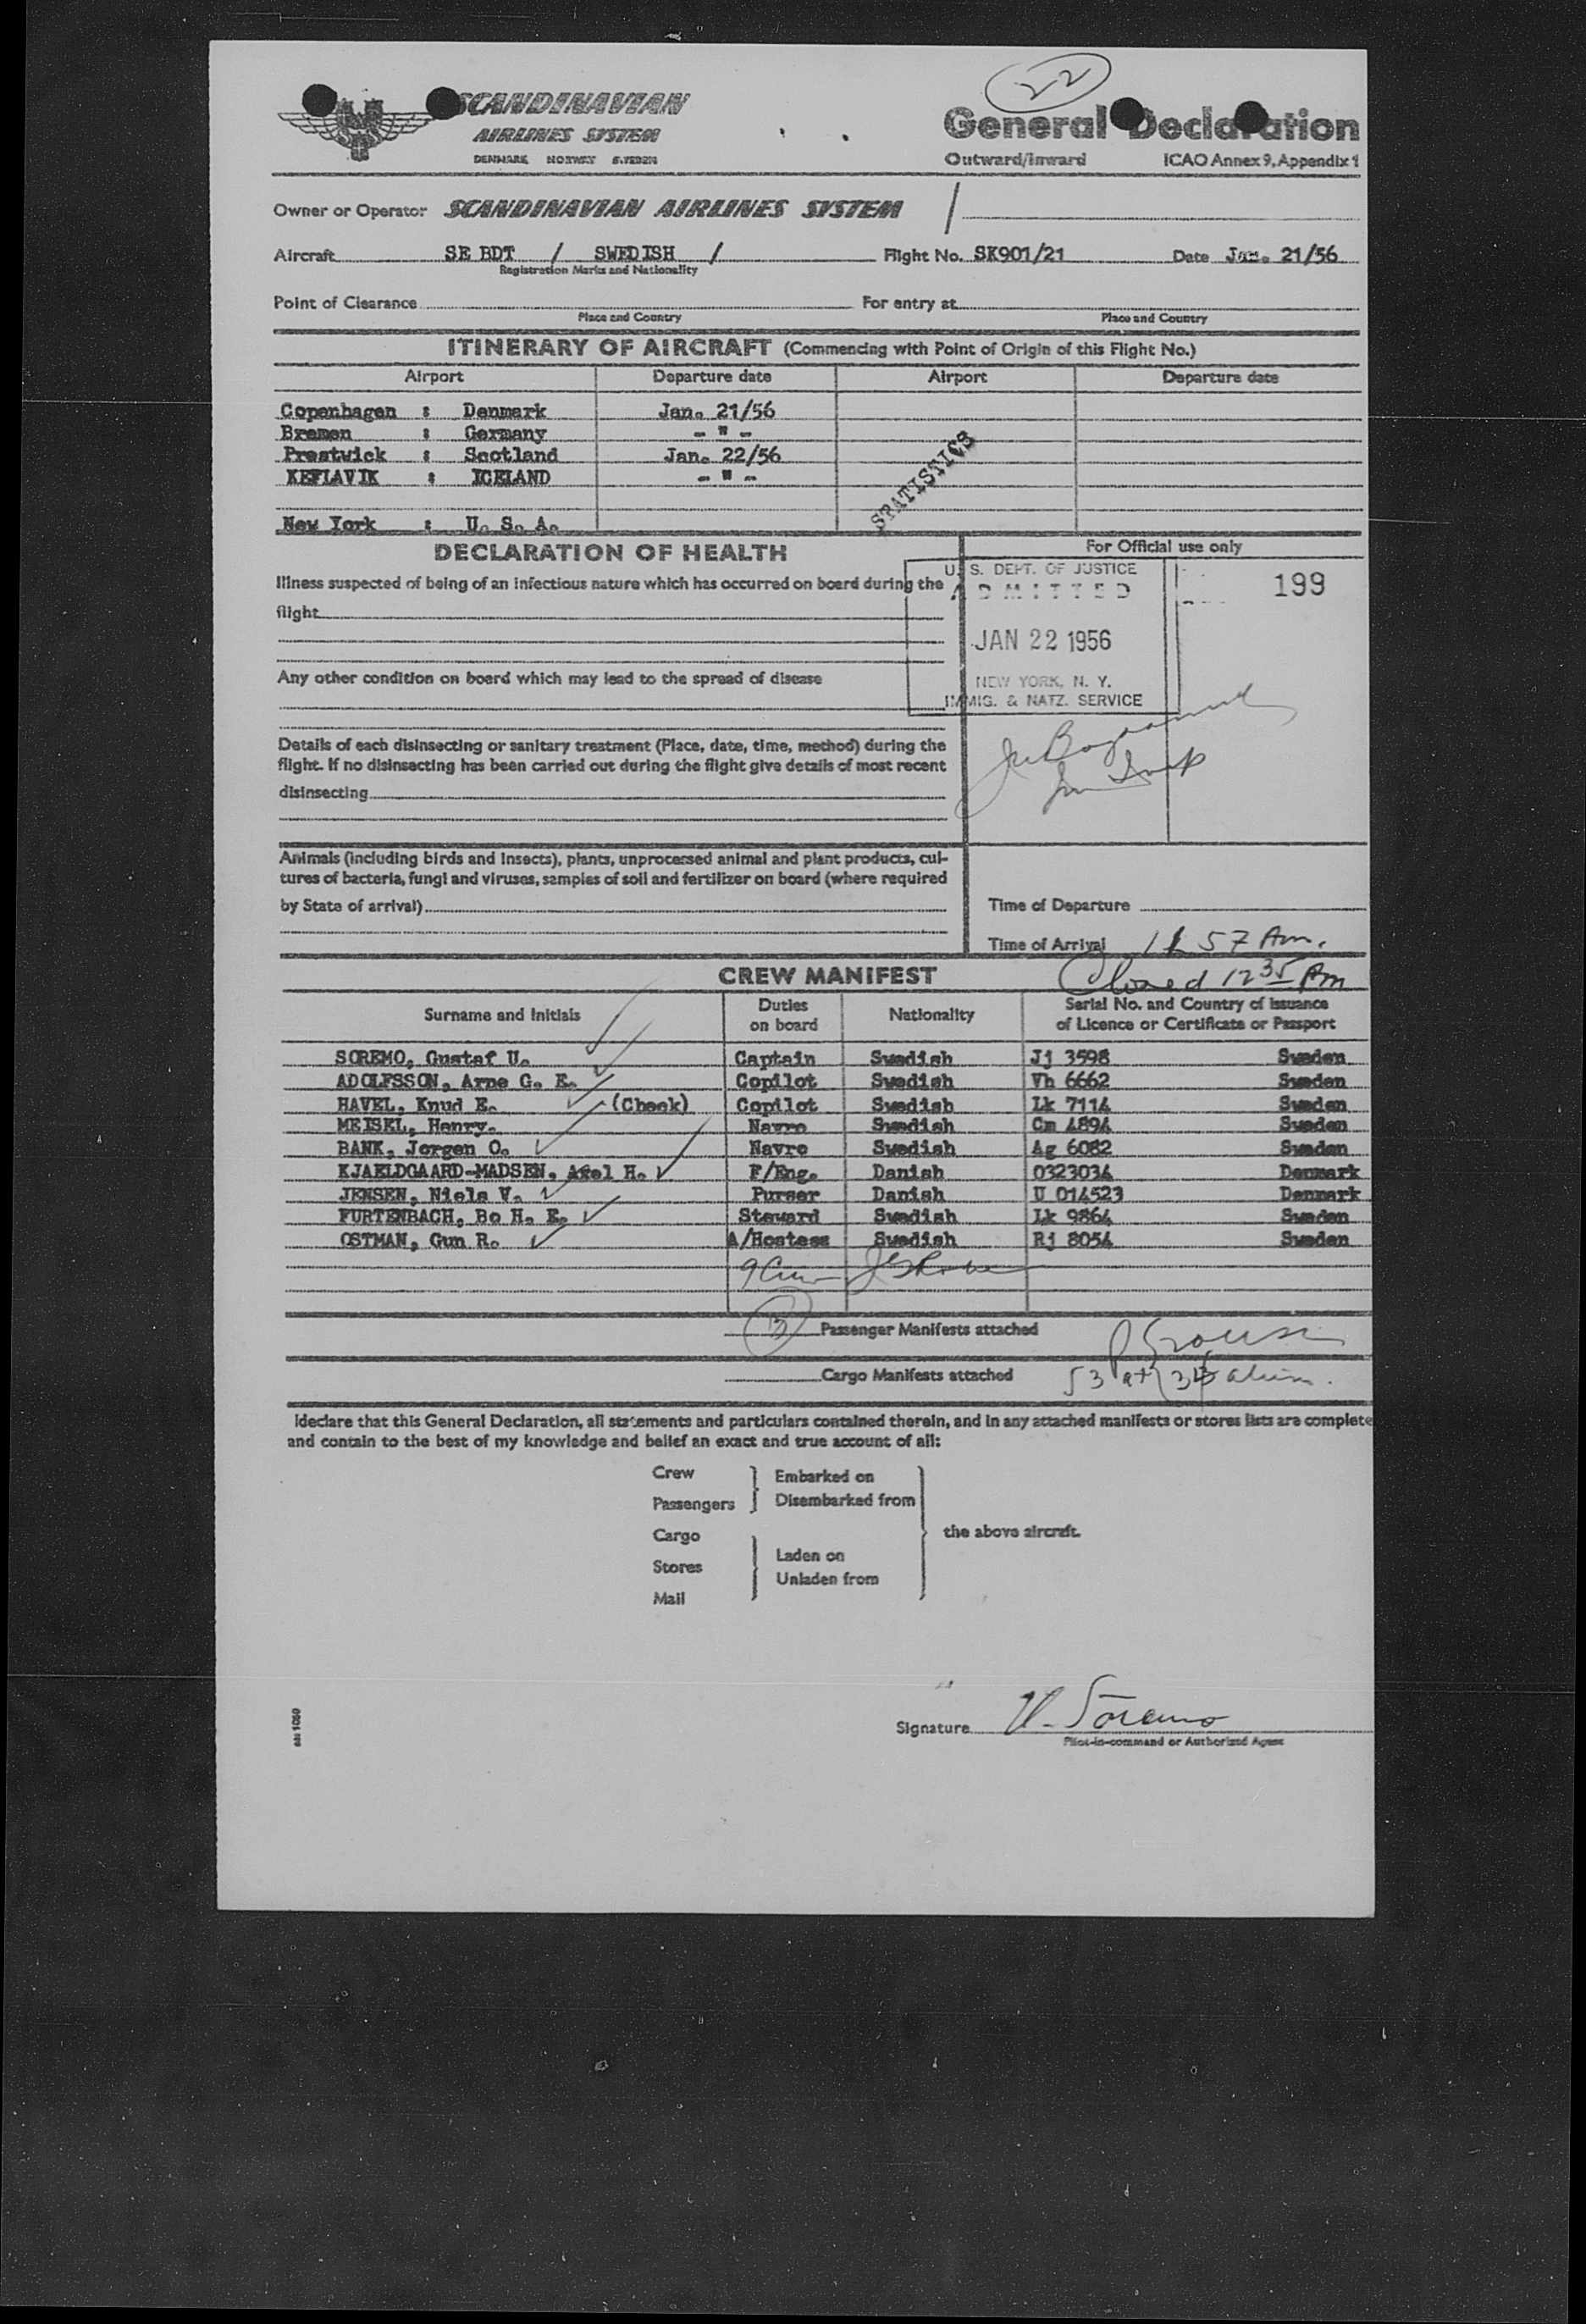 22
SCANDINAVIAN
AIRLINES SYSTEM
DENMARK NORWAY SWEDEN
General Declaration
Outward/Inward ICAO Annex 9, Appendix 1
Owner or Operator SCANDINAVIAN AIRLINES SYSTEM /
Aircraft SE BDT / SWEDISH / Flight No. SK901/21 Date Jan. 21/56
Registration Marks and Nationality
Point of Clearance For entry at
Place and Country Place and Country
ITINERARY OF AIRCRAFT (Commencing with Point of Origin of this Flight No.)
Airport Departure date Airport Departure date
Copenhagen : Denmark Jan. 21/56
Bremen : Germany - " -
Prestwick : Scotland Jan. 22/56
KEFLAVIK : ICELAND - " -
New York : U. S. A.
STATISTICS
DECLARATION OF HEALTH
Illness suspected of being of an infectious nature which has occurred on board during the
flight
Any other condition on board which may lead to the spread of disease
Details of each disinsecting or sanitary treatment (Place, date, time, method) during the
flight. If no disinsecting has been carried out during the flight give details of most recent
disinsecting
Animals (including birds and insects), plants, unprocessed animal and plant products, cul-
tures of bacteria, fungi and viruses, samples of soil and fertilizer on board (where required
by State of arrival)
For Official use only
U. S. DEPT. OF JUSTICE
ADMITTED
199
JAN 22 1956
NEW YORK, N. Y.
IMMIG. & NATZ. SERVICE
Time of Departure
Time of Arrival 11 57 Am.
Closed 12 35 Pm
CREW MANIFEST
Surname and Initials Duties on board Nationality Serial No. and Country of Issuance of Licence or Certificate or Passport
SOREMO, Gustaf U. Captain Swedish Jj 3598 Sweden
ADOLFSSON, Arne G. E. Copilot Swedish Vh 6662 Sweden
HAVEL, Knud E. (Check) Copilot Swedish Lk 7114 Sweden
MEISEL, Henry. Navro Swedish Cm 4894 Sweden
BANK, Jorgen O. Navro Swedish Ag 6082 Sweden
KJAELDGAARD-MADSEN, Axel H. F/Eng. Danish 0323034 Denmark
JENSEN, Niels V. Purser Danish U 014523 Denmark
FURTENBACH, Bo H. E. Steward Swedish Lk 9864 Sweden
OSTMAN, Gun R. A/Hostess Swedish Rj 8054 Sweden
Passenger Manifests attached
Cargo Manifests attached
I declare that this General Declaration, all statements and particulars contained therein, and in any attached manifests or stores lists are complete
and contain to the best of my knowledge and belief an exact and true account of all:
Crew
Passengers
Embarked on
Disembarked from
Cargo
Stores
Mail
Laden on
Unladen from
the above aircraft.
Signature U. Söremo
Pilot-in-command or Authorized Agent
sas 1060